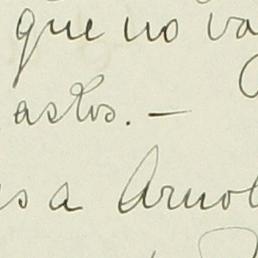 que no va
astos. —
es a Arnol